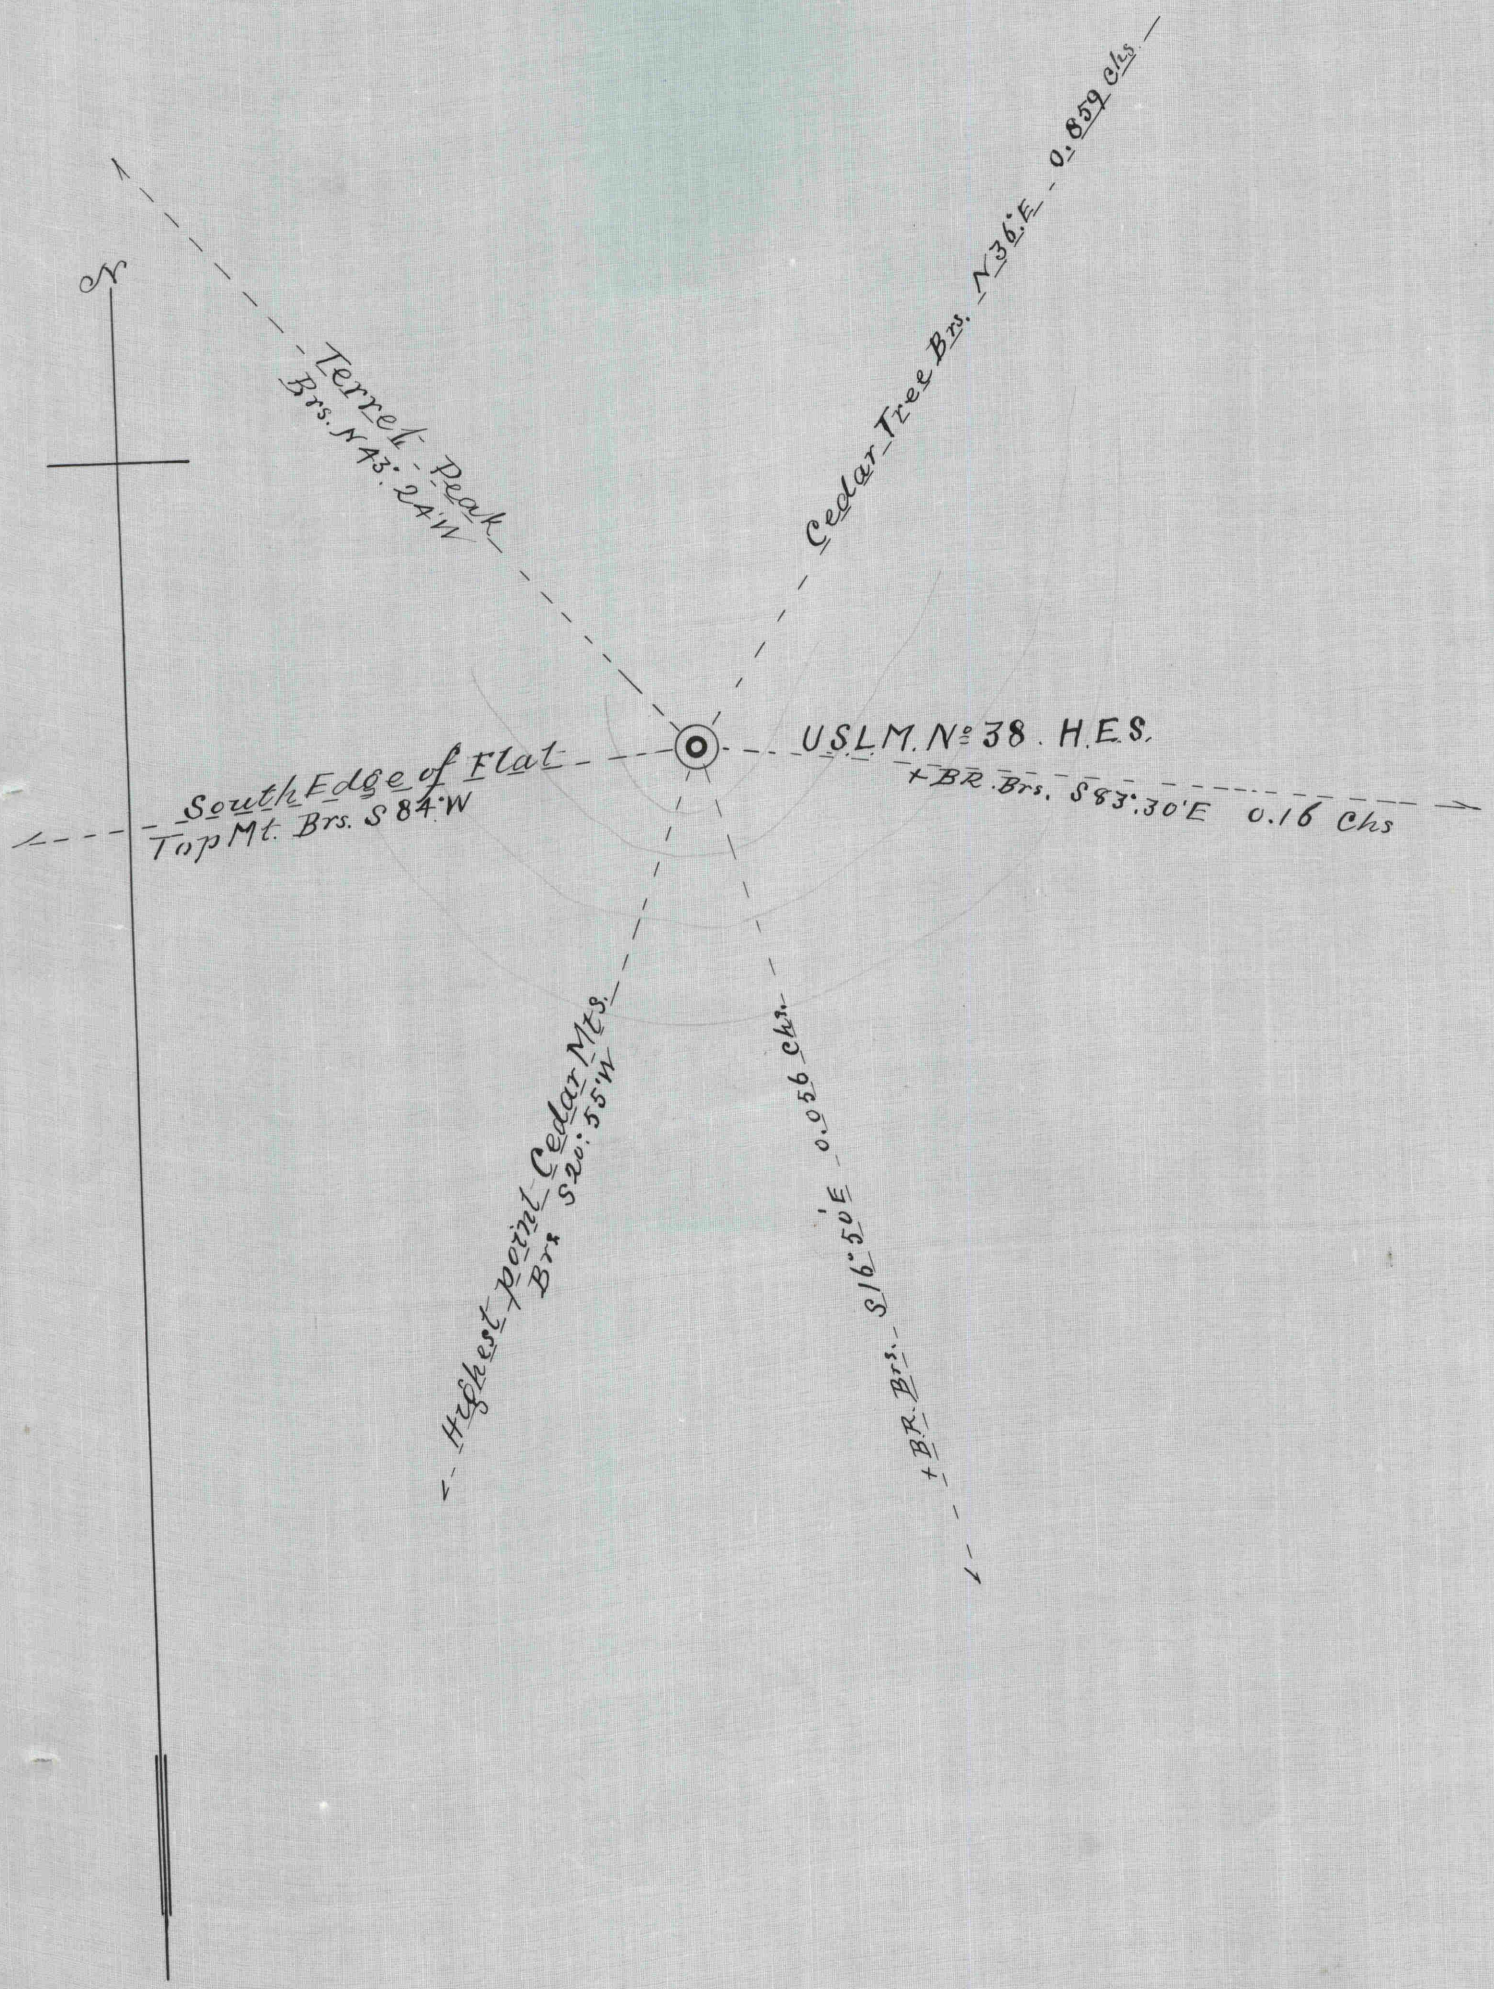 N
Terret Peak
Brs. N 43°. 24'W
Cedar Tree Brs. N 36°. E 0.859 Chs
U.S.L.M. Nº 38. H.E.S.
+ BR. Brs. S 83°.30'E 0.16 Chs
South Edge of Flat
Top Mt. Brs. S 84°. W
Highest point Cedar Mts.
Brs S 20°. 55'W
+ B.R. Brs. S 16° 50' E 0.056 Chs.